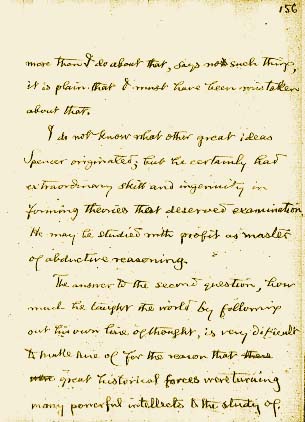 156
more than I do about that, says no such thing,
it is plain that I must have been mistaken
about that.
I do not know what other great ideas
Spencer originated; but he certainly had
extraordinary skill and ingenuity in
forming theories that deserved examination
He may be studied with profit as master
of abductive reasoning.
The answer to the second question, how
much he taught the world by following
out his own line of thought, is very difficult
to make out for the reason that there
were great historical forces were turning
many powerful intellects to the study of